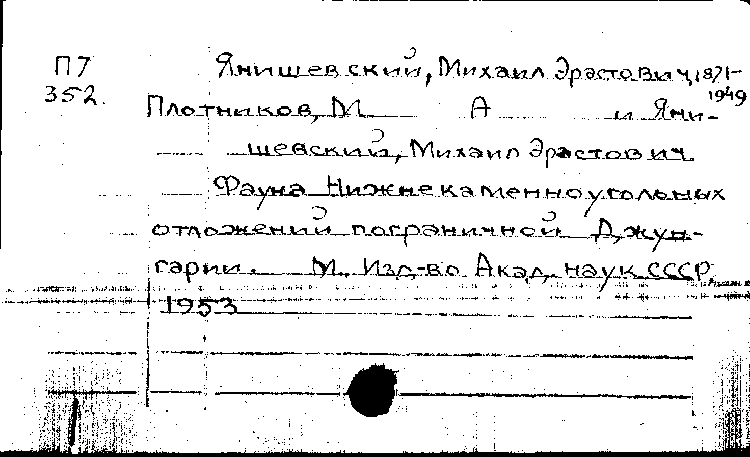 П7 Янишевский, Михаил Эрастович, 1871-
352. 1949
Плотников, М А и Яни-
шевский, Михаил Эрастович
Фауна Нижнекаменноугольных
отложений пограничной Джун-
гарии. М. Изд-во Акад. наук СССР
1953